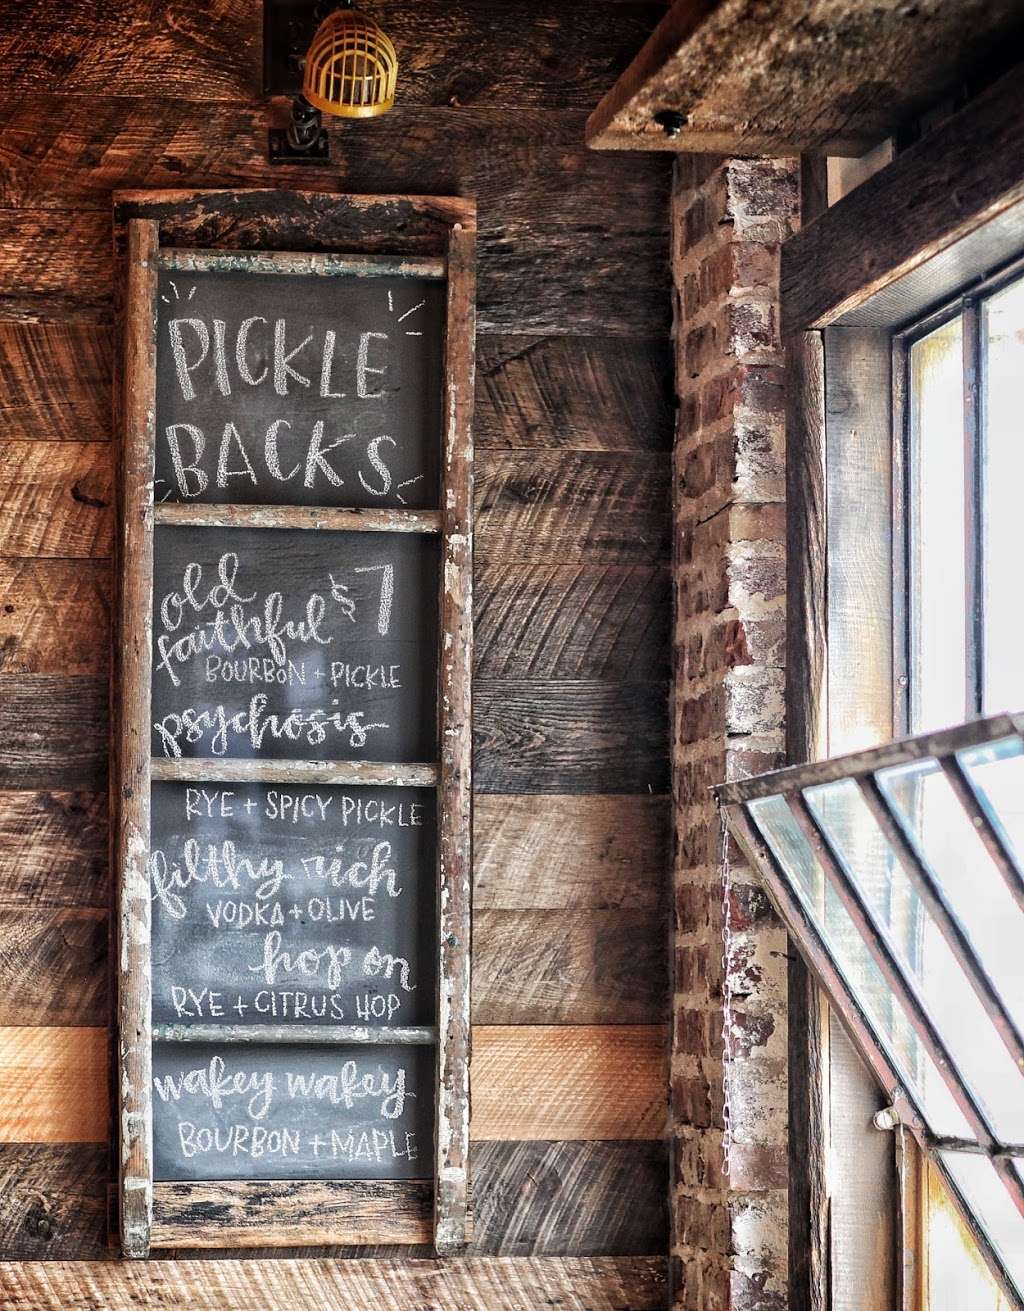 PICKLE
BACKS
old
faithful $7
BOURBON + PICKLE
psychosis
RYE + SPICY PICKLE
filthy rich
VODKA + OLIVE
hop on
RYE + CITRUS HOP
wakey wakey
BOURBON + MAPLE